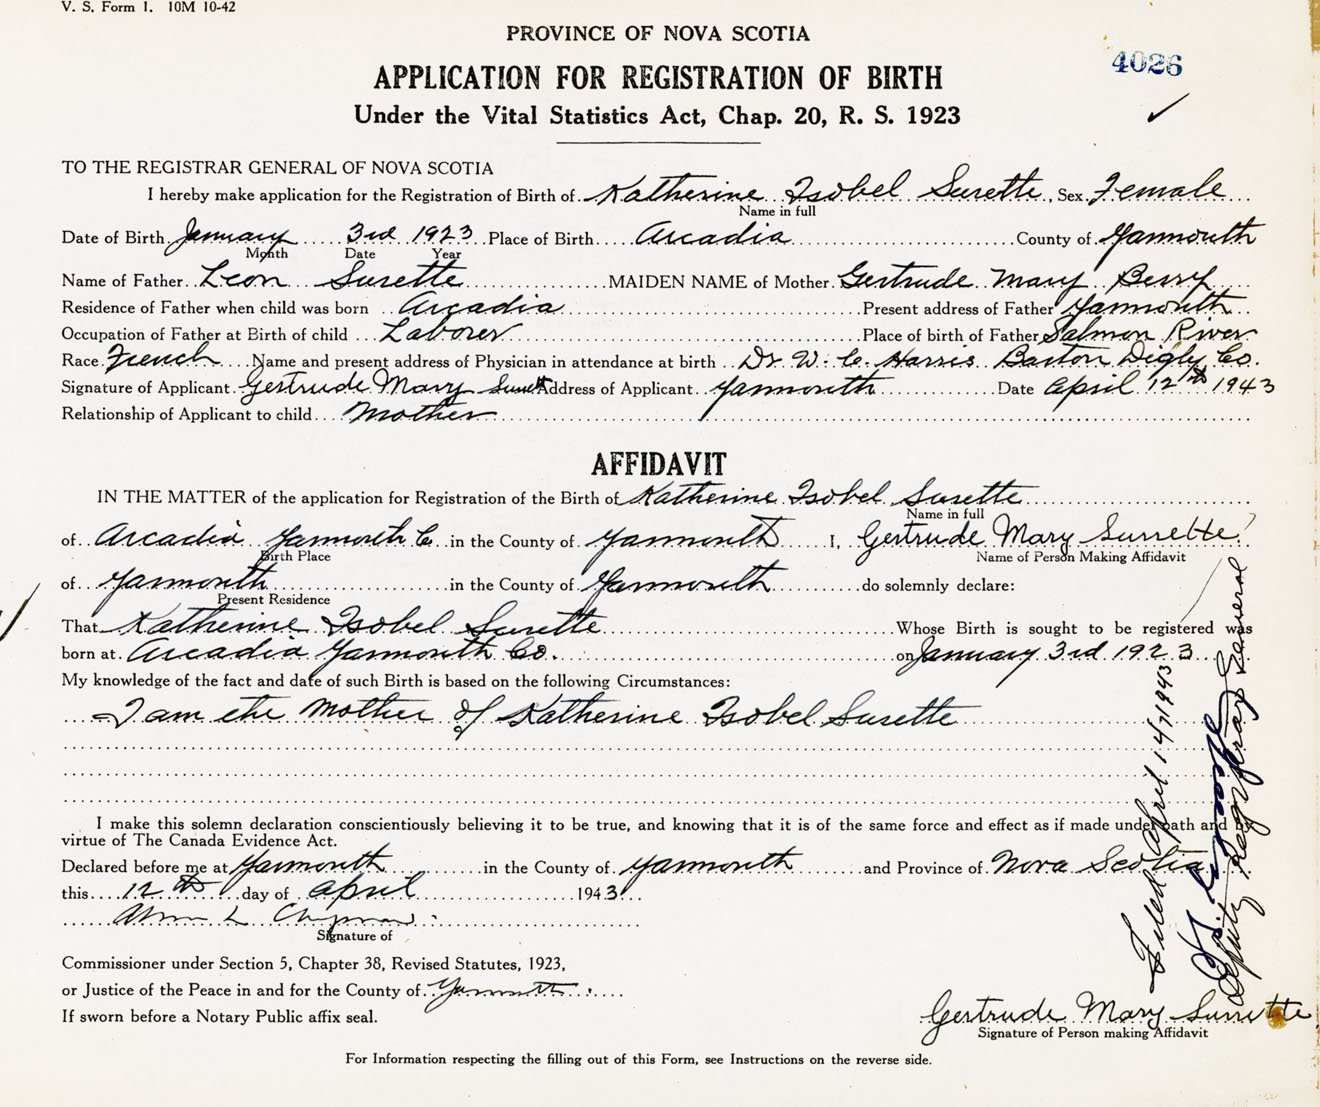 V. S. Form 1. 10M 10-42
PROVINCE OF NOVA SCOTIA
4026
APPLICATION FOR REGISTRATION OF BIRTH
Under the Vital Statistics Act, Chap. 20, R. S. 1923
TO THE REGISTRAR GENERAL OF NOVA SCOTIA
I hereby make application for the Registration of Birth of Katherine Isobel Surette, Sex Female
Name in full
Date of Birth January 3rd 1923 Place of Birth Arcadia County of Yarmouth
Month Date Year
Name of Father Leon Surette MAIDEN NAME of Mother Gertrude Mary Berry
Residence of Father when child was born Arcadia Present address of Father Yarmouth
Occupation of Father at Birth of child Laborer Place of birth of Father Salmon River
Race French Name and present address of Physician in attendance at birth Dr W. C. Harris Barton Digby Co.
Signature of Applicant Gertrude Mary Surette Address of Applicant Yarmouth Date April 12th 1943
Relationship of Applicant to child Mother
AFFIDAVIT
IN THE MATTER of the application for Registration of the Birth of Katherine Isobel Surette
Name in full
of Arcadia Yarmouth Co in the County of Yarmouth I, Gertrude Mary Surrette
Birth Place Name of Person Making Affidavit
of Yarmouth in the County of Yarmouth do solemnly declare:
Present Residence
That Katherine Isobel Surette Whose Birth is sought to be registered was
born at Arcadia Yarmouth Co. on January 3rd 1923
My knowledge of the fact and date of such Birth is based on the following Circumstances:
I am the Mother of Katherine Isobel Surette
I make this solemn declaration conscientiously believing it to be true, and knowing that it is of the same force and effect as if made under oath and by
virtue of The Canada Evidence Act.
Declared before me at Yarmouth in the County of Yarmouth and Province of Nova Scotia
this 12th day of April 1943
L Chapman
Signature of
Commissioner under Section 5, Chapter 38, Revised Statutes, 1923,
or Justice of the Peace in and for the County of Yarmouth
If sworn before a Notary Public affix seal.
Gertrude Mary Surrette
Signature of Person making Affidavit
For Information respecting the filling out of this Form, see Instructions on the reverse side.
Filed April 14/1943
Deputy Registrar General